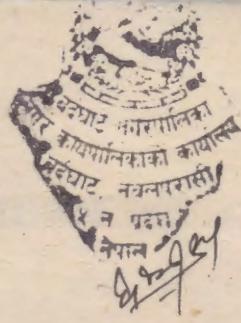 बर्दघाट नगरपालिका
नगर कार्यपालिकाको कार्यालय
बर्दघाट नवलपरासी
५ नं प्रदेश
नेपाल